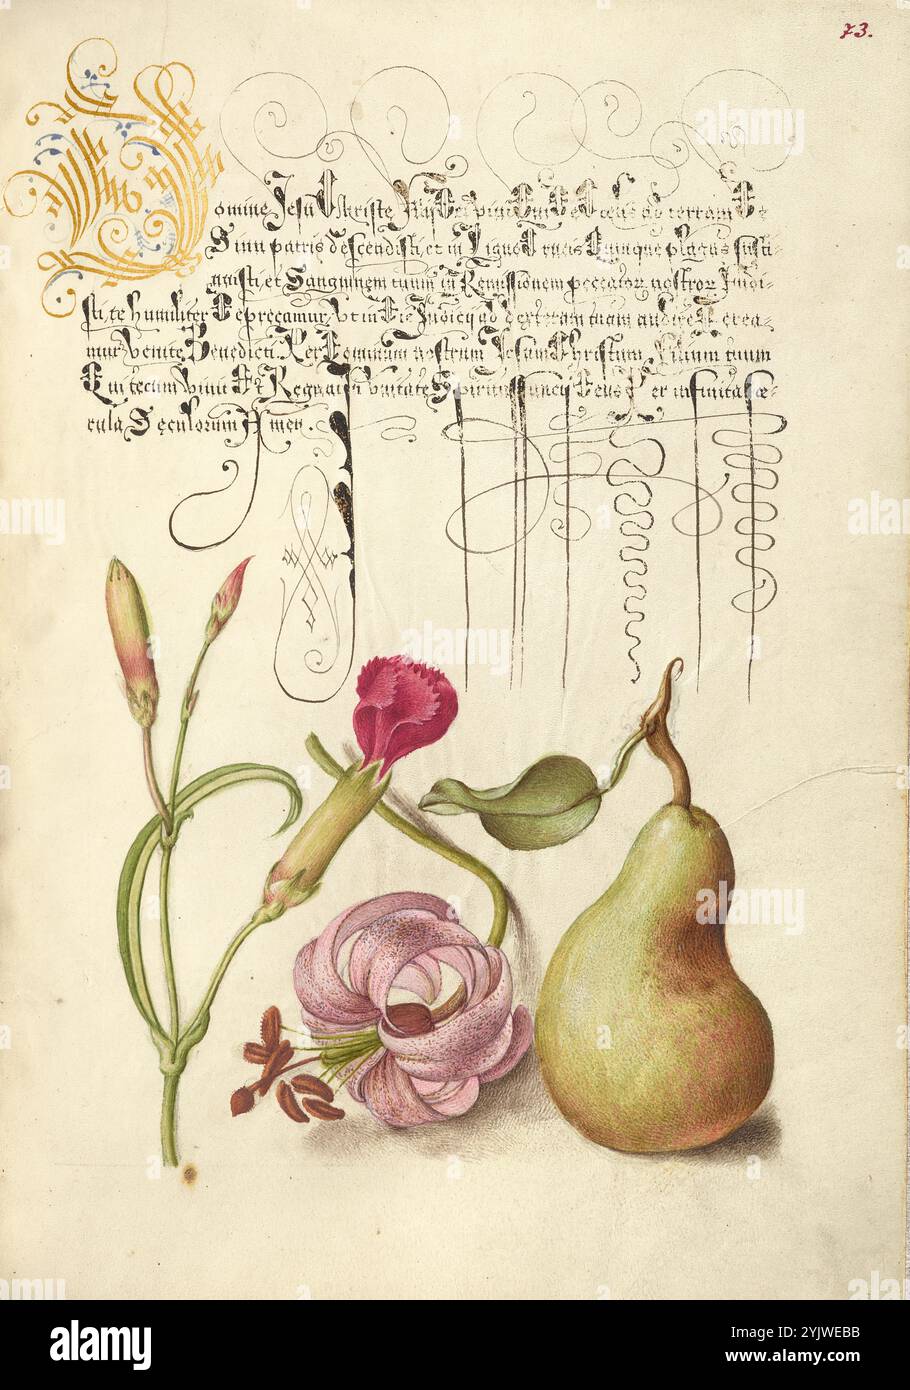 73.
Domine Jesu Christe Filij Dei vivi Qui De Celis ad terram De
Sinu patris descendisti, et in Ligno Crucis Quinque plagas susti-
nuisti, et Sanguinem tuum in Remissionem peccator nostror Fudi-
sti, te humiliter Deprecamur, Vt in Die Judicij ad dexteram tuam audire Merea-
mur, Venite Benedicti. Per Dominum nostrum Jesum Christum, Filium tuum
Qui tecum vivit Et Regnat In Vnitate Spiritus sancti Deus Per infinita Sæ-
cula Sęculorum Amen.
alamy
Image ID: 2YJWEBB
www.alamy.com